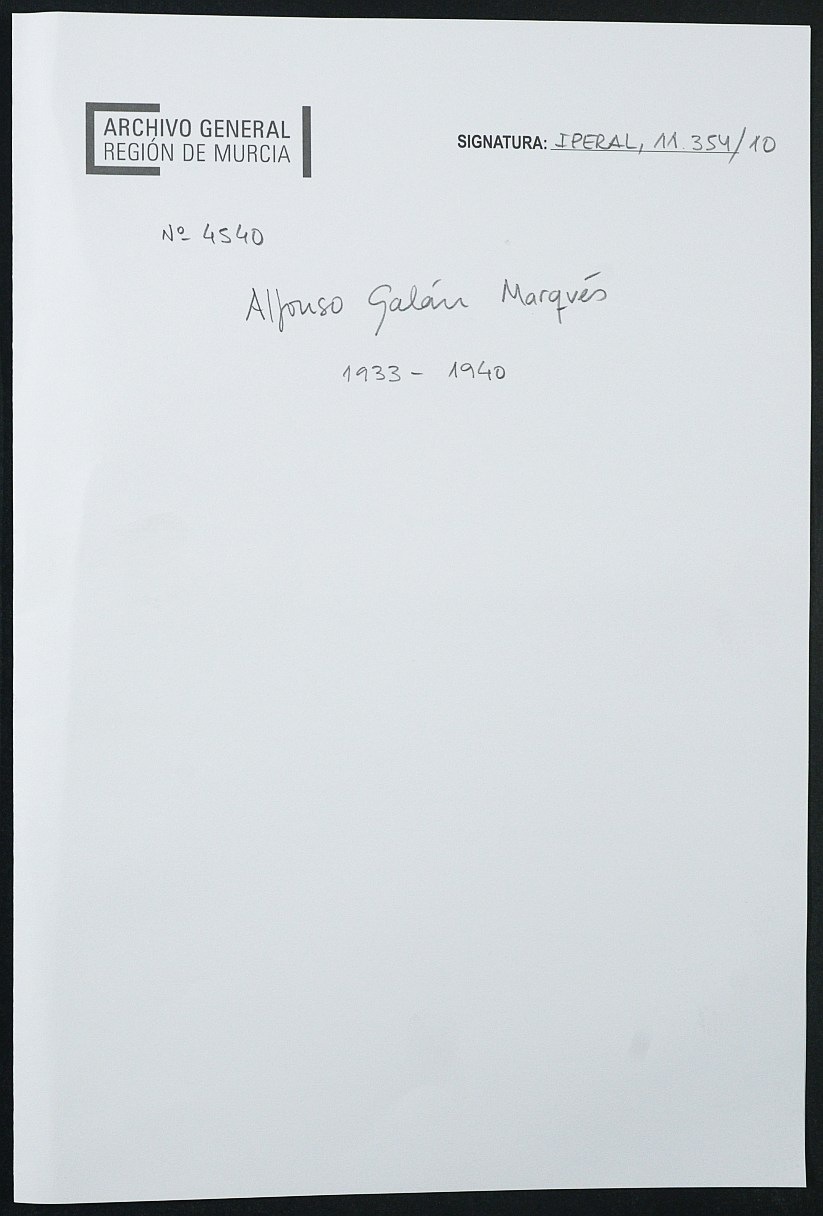 ARCHIVO GENERAL
REGIÓN DE MURCIA
SIGNATURA: IPERAL, 11.354/10
Nº 4540
Alfonso Galán Marqués
1933 - 1940